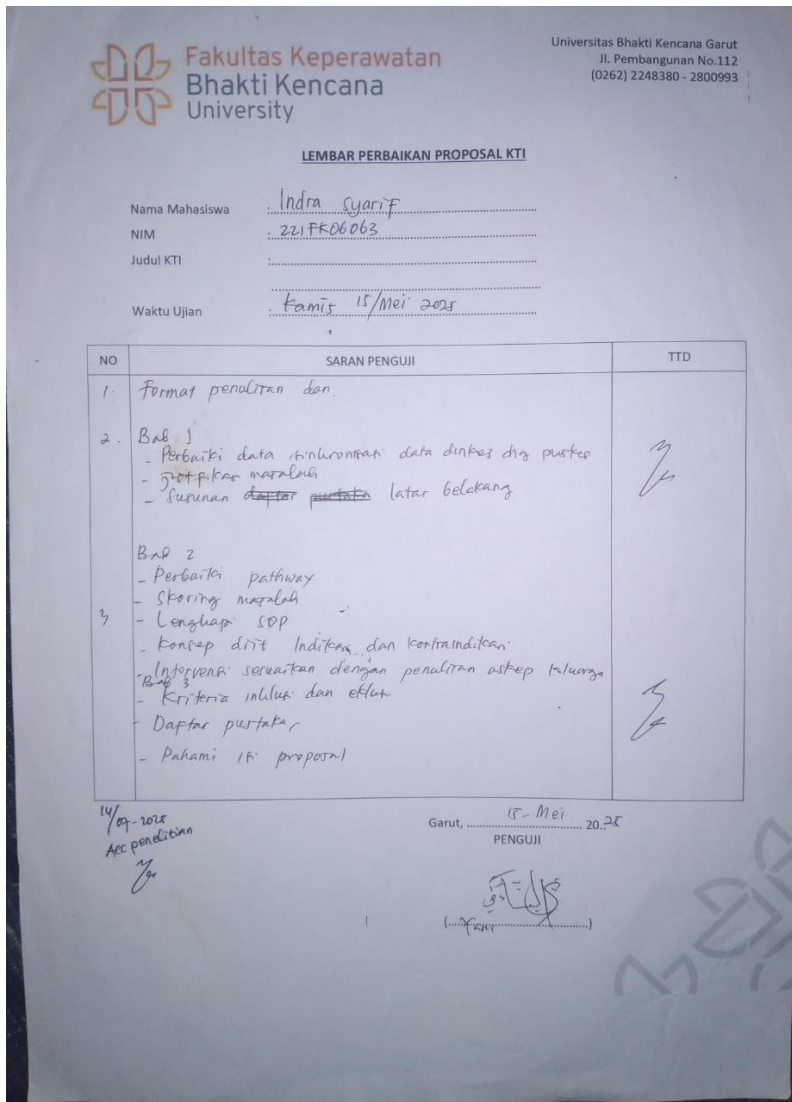 Fakultas Keperawatan
Bhakti Kencana
University
Universitas Bhakti Kencana Garut
Jl. Pembangunan No.112
(0262) 2248380 - 2800993
LEMBAR PERBAIKAN PROPOSAL KTI
Nama Mahasiswa : Indra Syarif
NIM : 221FK06063
Judul KTI :
Waktu Ujian : Kamis 15/Mei 2025
NO SARAN PENGUJI TTD
1. Format penulisan dan
2. Bab 1
- Perbaiki data sinkronisasi data dinkes dng puskes
- masalah
- Susunan daftar pustaka latar belakang
Bab 2
- Perbaiki pathway
- Skoring masalah
3 - Lengkapi SOP
- Konsep diit Indikasi dan kontraindikasi
- Intervensi sesuaikan dengan penulisan askep keluarga
Bab 3
- Kriteria inklusi dan eklusi
- Daftar pustaka
- Pahami isi proposal
14/07-2025
Acc penelitian
Garut, 15 - Mei 2025
PENGUJI